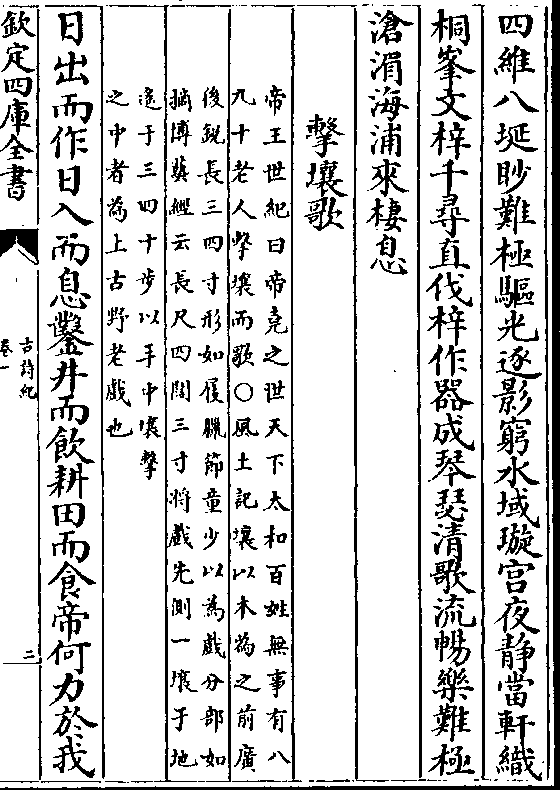 四維八埏眇難極驅光逐影窮水域璇宫夜靜當軒織
桐峯文梓千尋直伐梓作器成琴瑟清歌流暢樂難極
滄湄海浦來棲息
擊壤歌
帝王世紀曰帝堯之世天下太和百姓無事有八
九十老人擊壤而歌〇風土記壤以木為之前廣
後銳長三四寸形如履臘節童少以為戲分部如
擿博藝經云長尺四闊三寸將戲先側一壤于地
遙于三四十步以手中壤擊
之中者為上古野老戲也
日出而作日入而息鑿井而飲耕田而食帝何力於我
欽定四庫全書
古詩紀
卷一
二